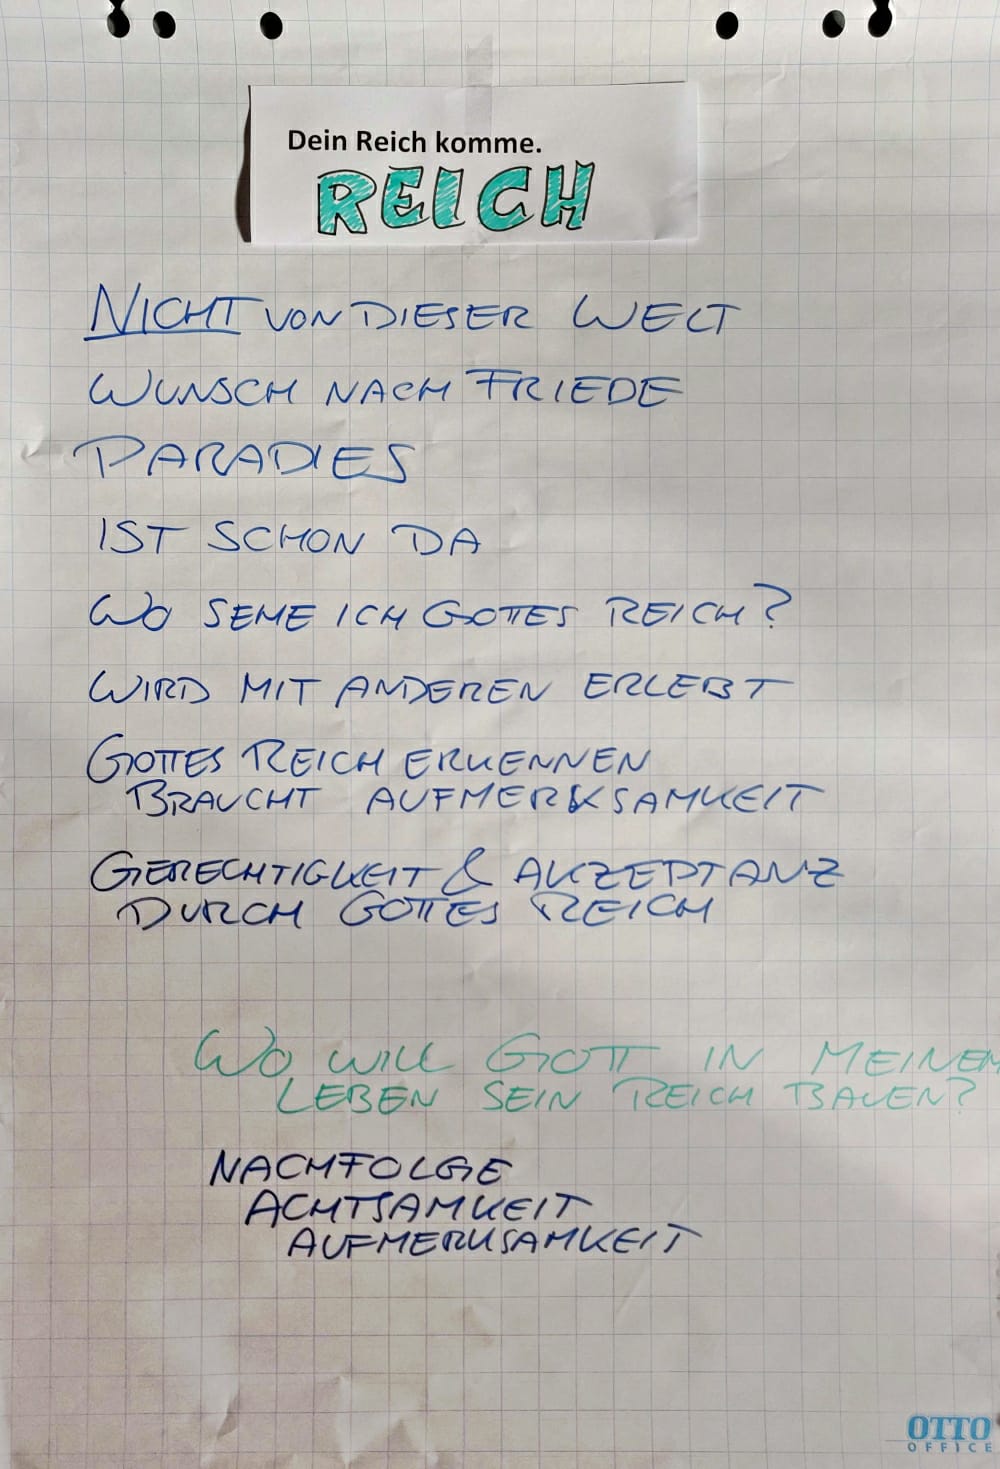 Dein Reich komme.
REICH
NICHT VON DIESER WELT
WUNSCH NACH FRIEDE
PARADIES
IST SCHON DA
WO SEHE ICH GOTTES REICH?
WIRD MIT ANDEREN ERLEBT
GOTTES REICH ERKENNEN
BRAUCHT AUFMERKSAMKEIT
GERECHTIGKEIT & AKZEPTANZ
DURCH GOTTES REICH
WO WILL GOTT IN MEINEM
LEBEN SEIN REICH BAUEN?
NACHFOLGE
ACHTSAMKEIT
AUFMERKSAMKEIT
OTTO
OFFICE